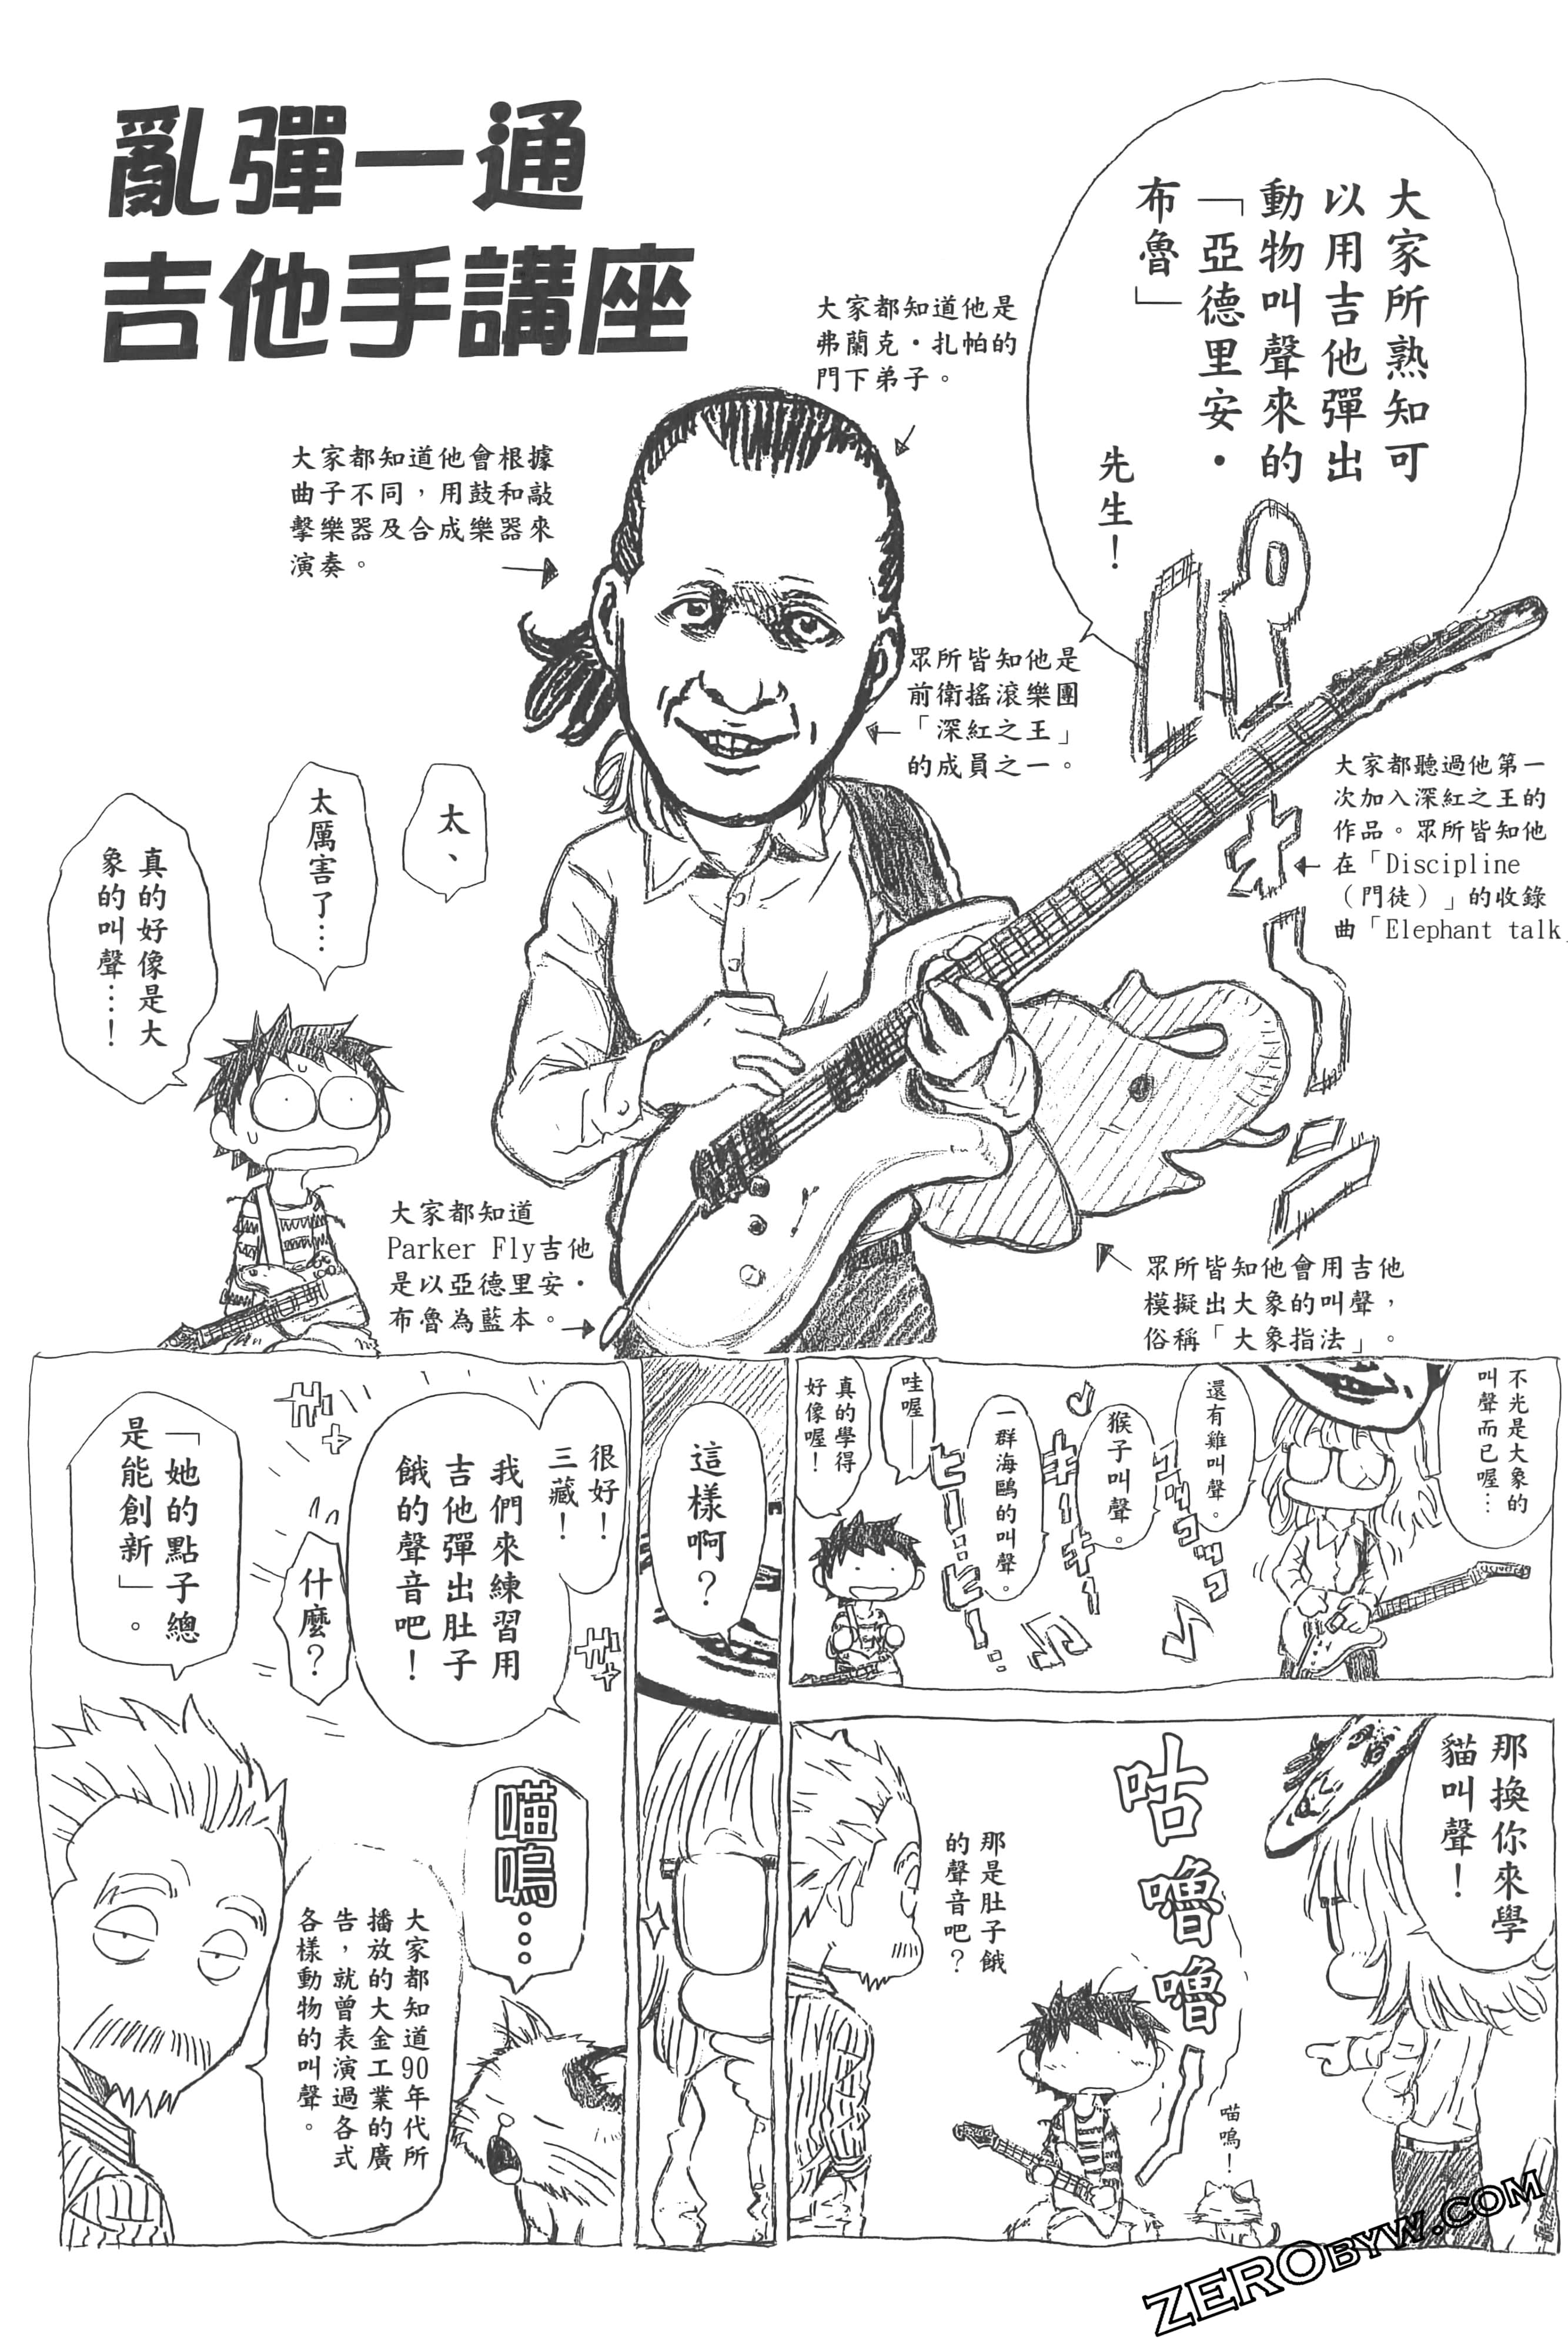 亂彈一通
吉他手講座
大家所熟知可
以用吉他彈出
動物叫聲來的
「亞德里安・
布魯」
先生！
パオーン
大家都知道他是
弗蘭克・扎帕的
門下弟子。
大家都知道他會根據
曲子不同，用鼓和敲
擊樂器及合成樂器來
演奏。
眾所皆知他是
前衛搖滾樂團
「深紅之王」
的成員之一。
大家都聽過他第一
次加入深紅之王的
作品。眾所皆知他
在「Discipline
（門徒）」的收錄
曲「Elephant talk」
太、
太厲害了…
真的好像是大
象的叫聲……！
大家都知道
Parker Fly吉他
是以亞德里安・
布魯為藍本。
眾所皆知他會用吉他
模擬出大象的叫聲，
俗稱「大象指法」。
不光是大象的
叫聲而已喔…
還有雞叫聲。
コッコッコッ
猴子叫聲。
キーキーキー
一群海鷗的叫聲。
ヒー…ヒー…
哇喔——
真的學得
好像喔！
那換你來學
貓叫聲！
咕嚕嚕ー
喵嗚！
那是肚子餓
的聲音吧？
這樣啊？
很好！
三藏！
我們來練習用
吉他彈出肚子
餓的聲音吧！
ガーン
ガーン
什麼？
「她的點子總
是能創新」。
喵嗚…
大家都知道90年代所
播放的大金工業的廣
告，就曾表演過各式
各樣動物的叫聲。
ZEROBYW.COM